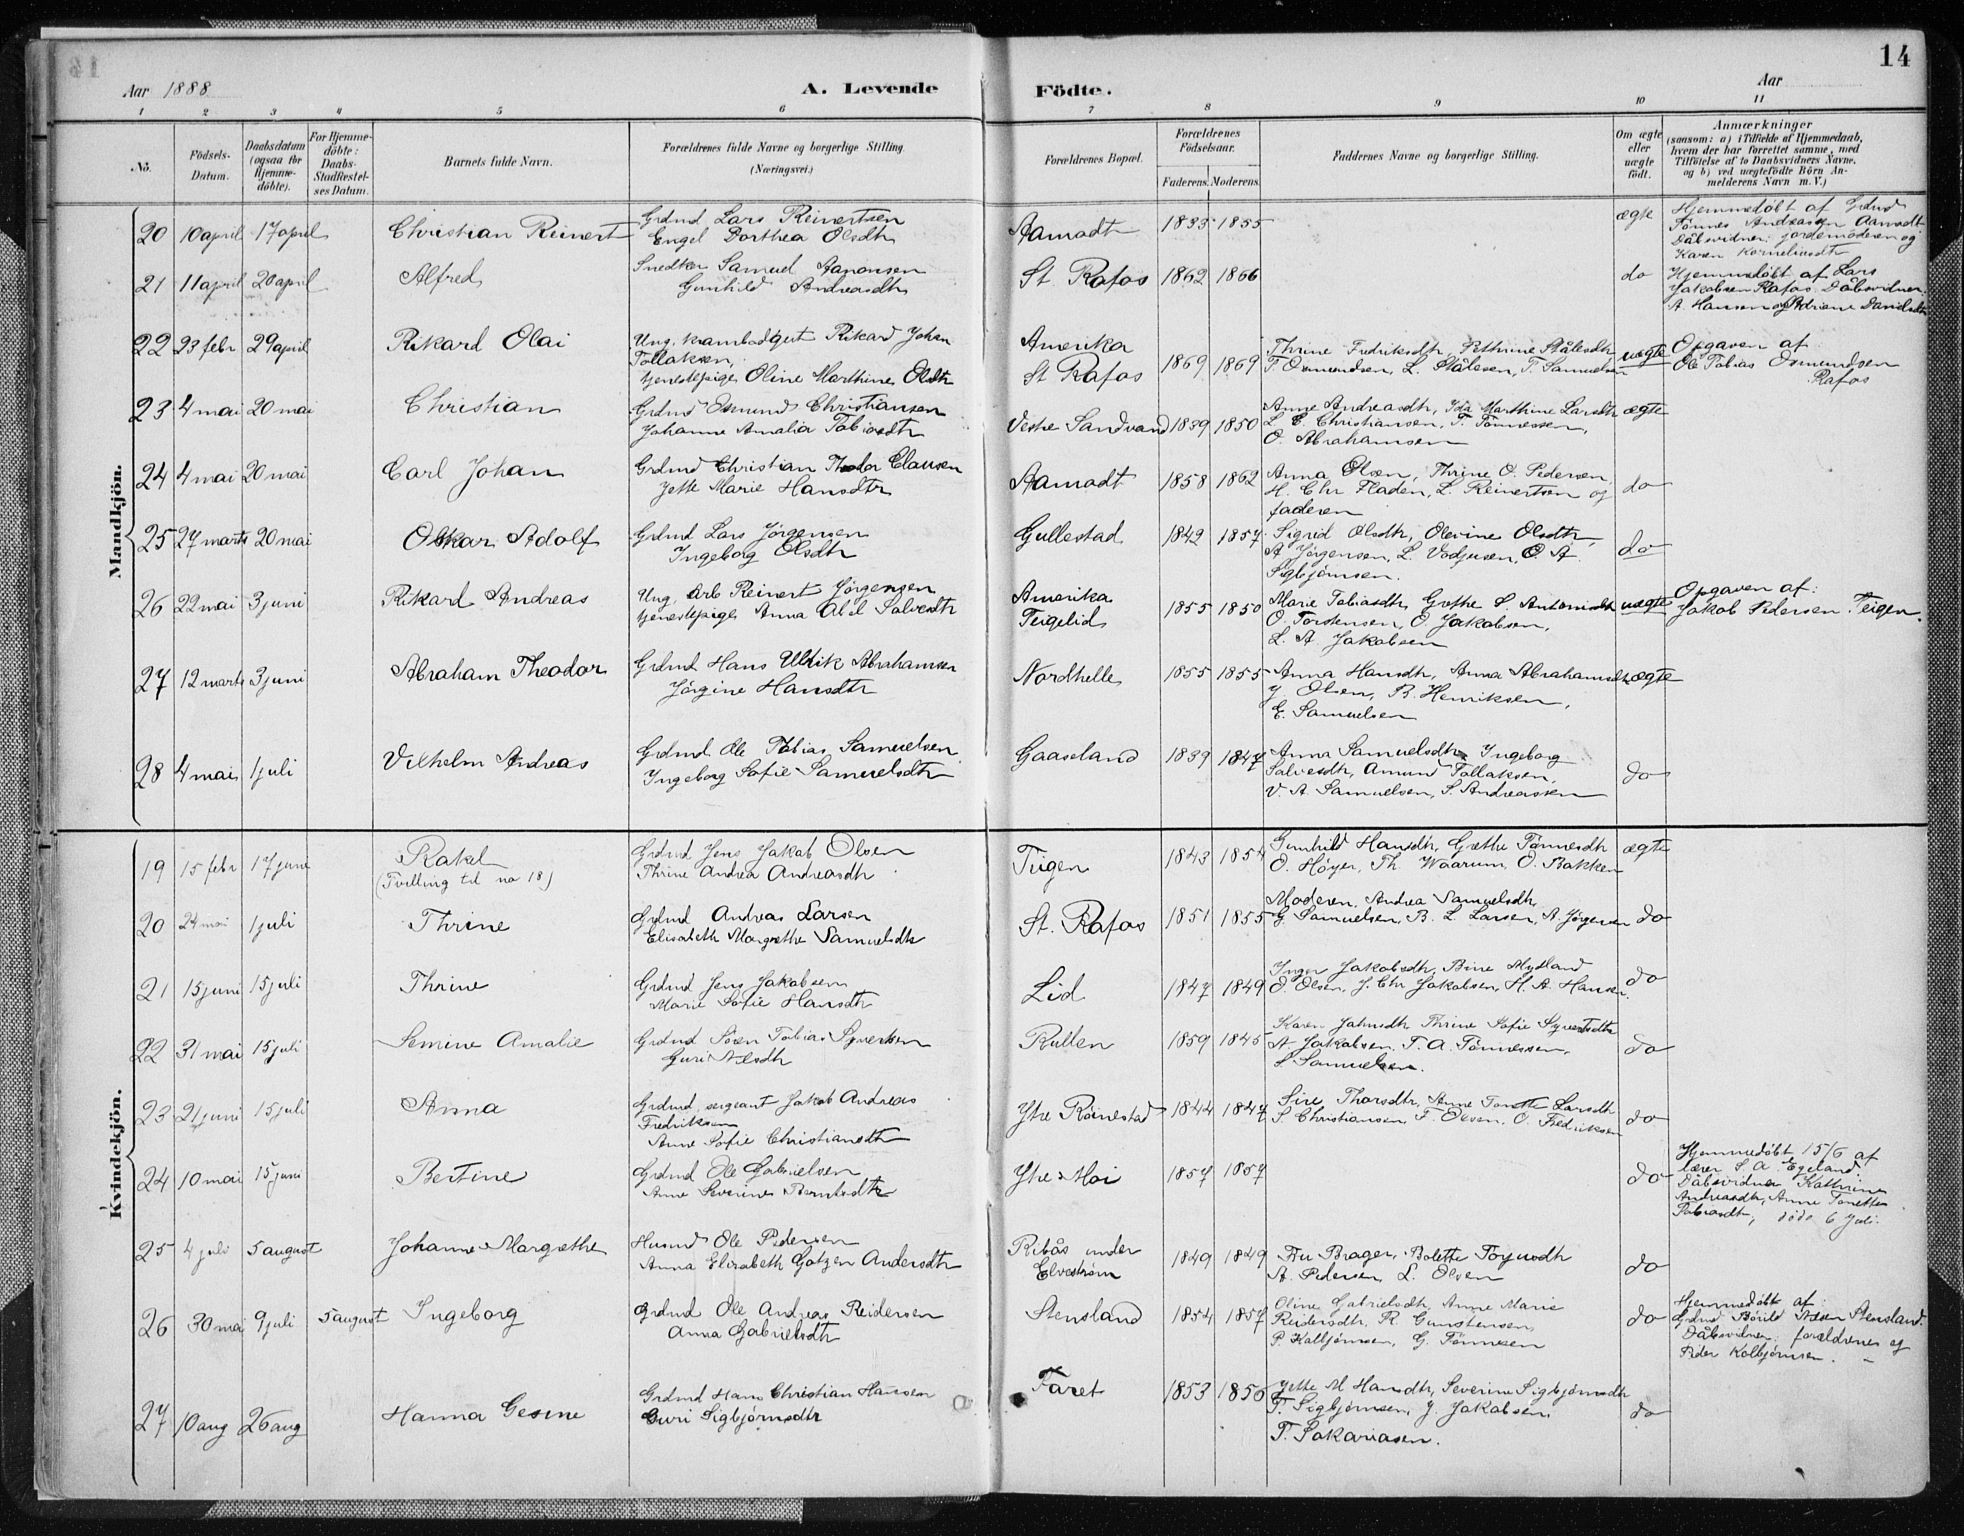 14
Aar 1888
A. Levende
Födte.
Aar
1 2 3 4 5 6 7 8 9 10 11
No.
Födsels-Datum.
Daabsdatum (ogsaa for Hjemme-döbte).
For Hjemme-döbte: Daabs-Stadfestel-ses Datum.
Barnets fulde Navn.
Forældrenes fulde Navne og borgerlige Stilling.
(Næringsvei.)
Forældrenes Bopæl.
Forældrenes Födselsaar.
Faderens. Moderens.
Faddernes Navne og borgerlige Stilling.
Om ægte eller uægte födt.
Anmærkninger
(saasom: a) i Tilfælde af Hjemmedaab,
hvem der har forrettet samme, med
Tilföielse af to Daabsvidners Navne,
og b) ved uægtefödte Börn An-
melderens Navn m. V.)
Mandkjön.
20 10 april 17 april Christian Reinert Grdmd Lars Reinertsen
Engel Dorthea Olsdtr Aamodt 1833 1855 ægte
Hjemmedøbt af Grdmd
Tønnes Andreasen Aamodt
Dåbsvidner: jordemoderen og
Karen Korneliusdtr
21 11 april 20 april Alfred Snedker Samuel Aanonsen
Gunhild Andreasdtr St. Rafos 1862 1866 do
Hjemmedøbt af Lars
Jakobsen Rafos. Dåbsvidner.
A. Hansen og Adriane Danielsdtr
22 23 febr 29 april Rikard Olai Ung. krambodgut Rikard Johan
Tollaksen,
tjenestepige Oline Marthine Olsdtr
Amerika
St Rafos 1869 1869 Thrine Fredriksdtr, Pethrine Stålesdtr
T. Osmundsen, L. Stålesen, T. Samuelsen uægte
Opgaven af
Ole Tobias Osmundsen
Rafos
23 4 mai 20 mai Christian Grdmd Osmund Christiansen
Johanne Amalia Tobiasdtr Vestre Sandvand 1839 1850
Anne Andreasdtr, Ida Marthine Larsdtr ægte
L. E. Christiansen, T. Tønnessen,
O. Abrahamsen
24 4 mai 20 mai Carl Johan Grdmd Christian Theodor Clausen
Jette Marie Hansdtr Aamodt 1858 1862
Anna Olsen, Thrine O. Pedersen,
H. Chr Fladen, L. Reinertsen og do
faderen
25 27 marts 20 mai Oskar Adolf Grdmd Lars Jørgensen
Ingeborg Olsdtr Gullestad 1842 1857
Sigrid Olsdtr, Olevine Olsdtr,
A Jørgensen, L. Vodjusen, O. A. do
Sigbjørnsen.
26 22 mai 3 juni Rikard Andreas Ung. arb Reinert Jørgensen
tjenestepige Anna Abel Salvesdtr
Amerika
Teigelid 1855 1850 Marie Tobiasdtr, Grethe S. Antonisdtr uægte
O. Torstensen, O. Jakobsen,
L. A. Jakobsen
Opgaven af:
Jakob Pedersen Teigen.
27 12 marts 3 juni Abraham Theodor Grdmd Hans Ulrik Abrahamsen
Jörgine Hansdtr Nordhelle 1855 1855
Anna Hansdtr, Anna Abrahamsdtr ægte
J. Olsen, B. Henriksen,
E. Samuelsen
28 4 mai 1 juli Vilhelm Andreas Grdmd. Ole Tobias Samuelsen
Ingeborg Sofie Samuelsdtr Gaaseland 1839 1847
Anna Samuelsdtr Ingeborg
Salvesdtr, Amund Tollaksen, do
V. A. Samuelsen, S. Andreassen
Kvindekjön.
19 15 febr 17 juni Rakel
(Tvilling til no 18)
Grdmd Jens Jakob Olsen
Thrine Andrea Andreasdtr Teigen 1843 1854
Gunhild Hansdtr, Grethe Tønnesdtr ægte
O. Høyer, Th. Waarum, O. Bakken
20 24 mai 1 juli Thrine Grdmd Andreas Larsen
Elisabeth Margrethe Samuelsdtr St. Rafos 1851 1855
Moderen, Andrea Samuelsdtr
G. Samuelsen, B. L. Larsen, A. Jørgensen do
21 15 juni 15 juli Thrine Grdmd Jens Jakobsen
Marie Sofie Hansdtr Lid 1847 1849
Inger Jakobsdtr, Bine Mysland
O. Olsen, J. Chr Jakobsen, H. A. Hansen. do
22 31 mai 15 juli Semine Amalie Grdmd Søren Tobias Syvertsen
Guri Atlsdtr Rullen 1859 1845
Karen Jahnsdtr Thrine Sofie Syvertsdtr
A. Jakobsen, T. A. Tønnessen, do
S. Samuelsen.
23 21 juni 15 juli Anna Grdmd, sergeant Jakob Andreas
Fredriksen
Anne Sofie Christiansdtr Ytre Röinestad 1844 1847
Sire Thorsdtr, Anne Tonette Larsdtr
S. Christiansen, T. Olsen, O. Fredriksen do
24 10 mai 15 juni Bertine Grdmd Ole Gabrielsen
Anne Severine Berntsdtr Ytre Moi 1857 1857 do
Hjemmedøbt 15/6 af
lærer S. A. Egeland.
Dåbsvidner Kathrine
Andreasdtr, Anne Tonette
Tobiasdtr, døde 6 juli.
25 4 juli 5 august Johanne Margrethe Husmd Ole Pedersen
Anna Elisabeth Gotzen Andersdtr
Ribås under
Elvestrøm 1849 1849 Fru Brager, Bolette Torjusdtr
A. Pedersen, L. Olsen do
26 30 mai 9 juli 5 august Ingeborg Grdmd Ole Andreas Reidersen
Anna Gabrielsdtr Stensland 1854 1857
Oline Gabrielsdtr, Anne Marie
Reidersdtr, R. Gunstensen, do
P. Kolbjørnsen, G. Tønnesen
Hjemmedøbt af
Grdmd Børild Atlsen Stensland.
Dåbsvidner: forældrenes og
Peder Kolbjørnsen.
27 10 aug 26 aug Hanna Gesine Grdmd Hans Christian Hansen
Guri Sigbjörnsdtr Faret 1853 1856
Jette M Hansdtr, Severine Sigbjørnsdtr
T. Sigbjørnsen, J. Jakobsen, do
T. Sakariasen.